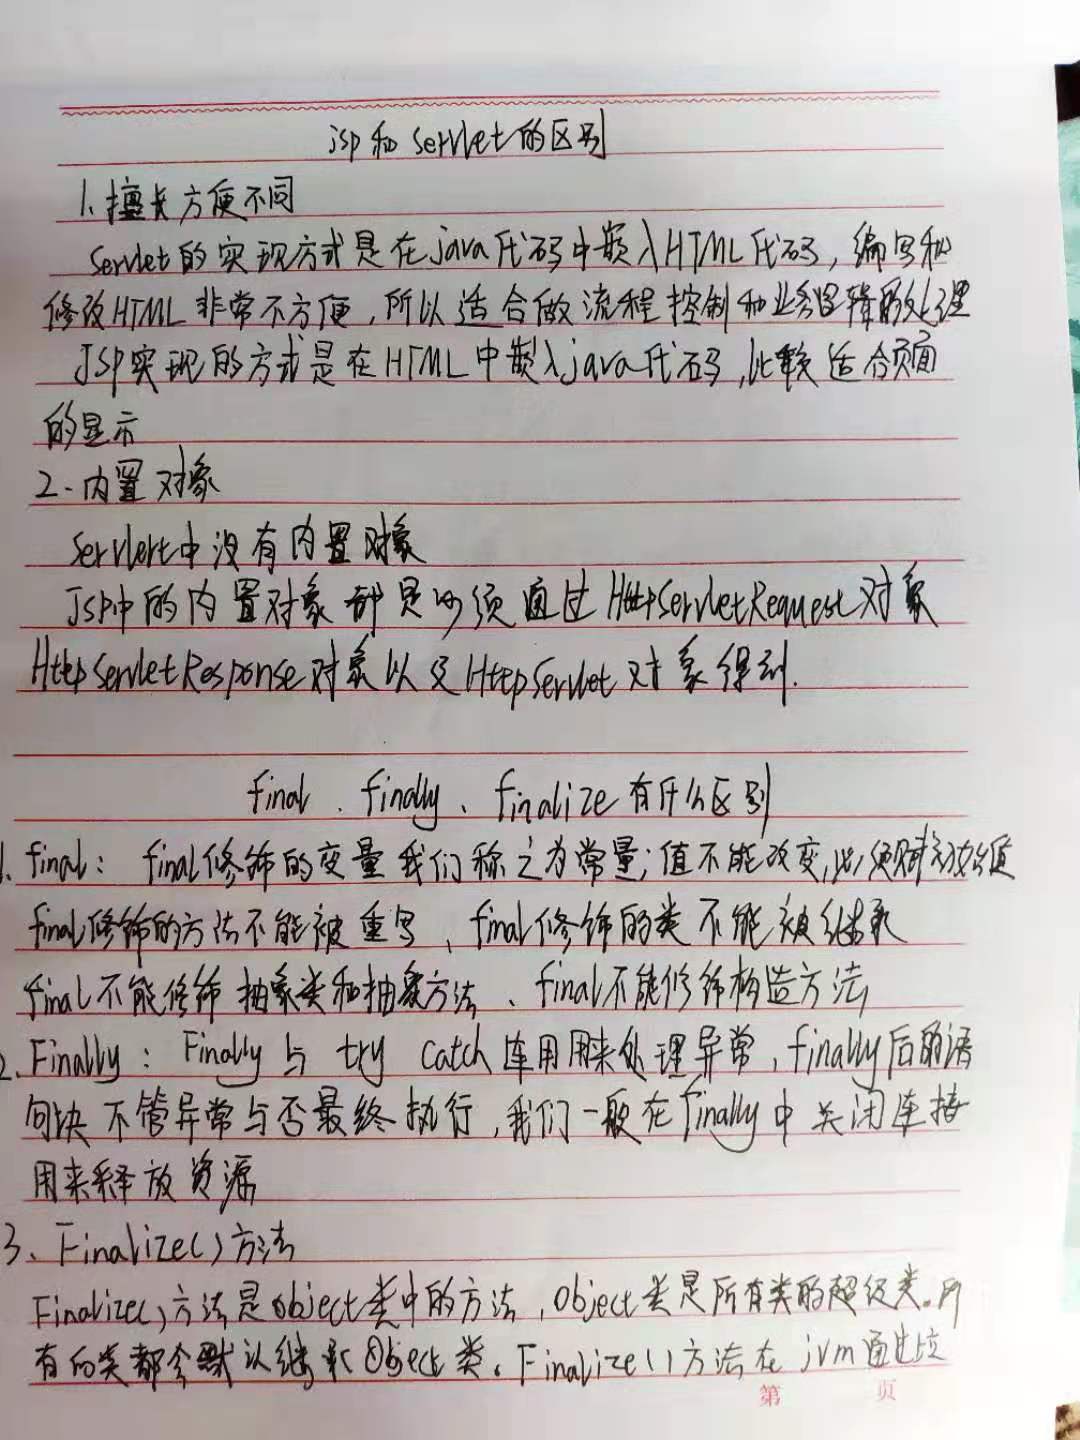 jsp和servlet的区别
1.擅长方便不同
Servlet的实现方式是在java代码中嵌入HTML代码，编写和
修改HTML非常不方便，所以适合做流程控制和业务逻辑的处理
JSP实现的方式是在HTML中嵌入java代码，比较适合页面
的显示
2.内置对象
Servlert中没有内置对象
JSP中的内置对象都是必须通过HttpServletRequest对象
HttpServletResponse对象以及HttpServlet对象得到.
final、finally、finalize有什么区别
1.final：final修饰的变量我们称之为常量；值不能改变，必须赋初始值
final修饰的方法不能被重写、final修饰的类不能被继承
final不能修饰抽象类和抽象方法、final不能修饰构造方法
2.Finally：Finally与try catch连用用来处理异常，finally后的语
句块不管异常与否最终执行，我们一般在finally中关闭连接
用来释放资源
3、Finalize()方法
Finalize()方法是object类中的方法，Object类是所有类的超级类。所
有的类都会默认继承Object类。Finalize()方法在jvm通过垃
第 页